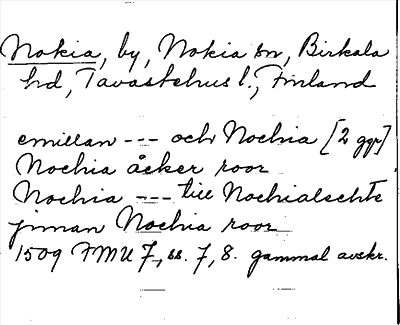 Nokia, by, Nokia sn, Birkala
hd, Tavastehus l., Finland
emillan --- och Nochia [2 ggr]
Nochia åcker roor
Nochia --- till Nochialschte
jnnan Nochia roor
1509 FMU 7, ss. 7, 8. gammal avskr.